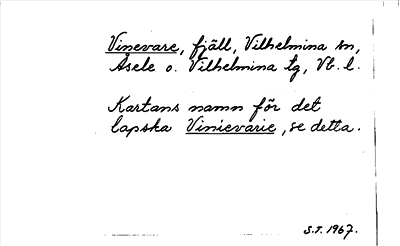 Vinevare, fjäll, Vilhelmina sn,
Åsele o. Vilhelmina tg, Vb. l.
Kartans namn för det
lapska Vinievarie, se detta.
S.T. 1967.